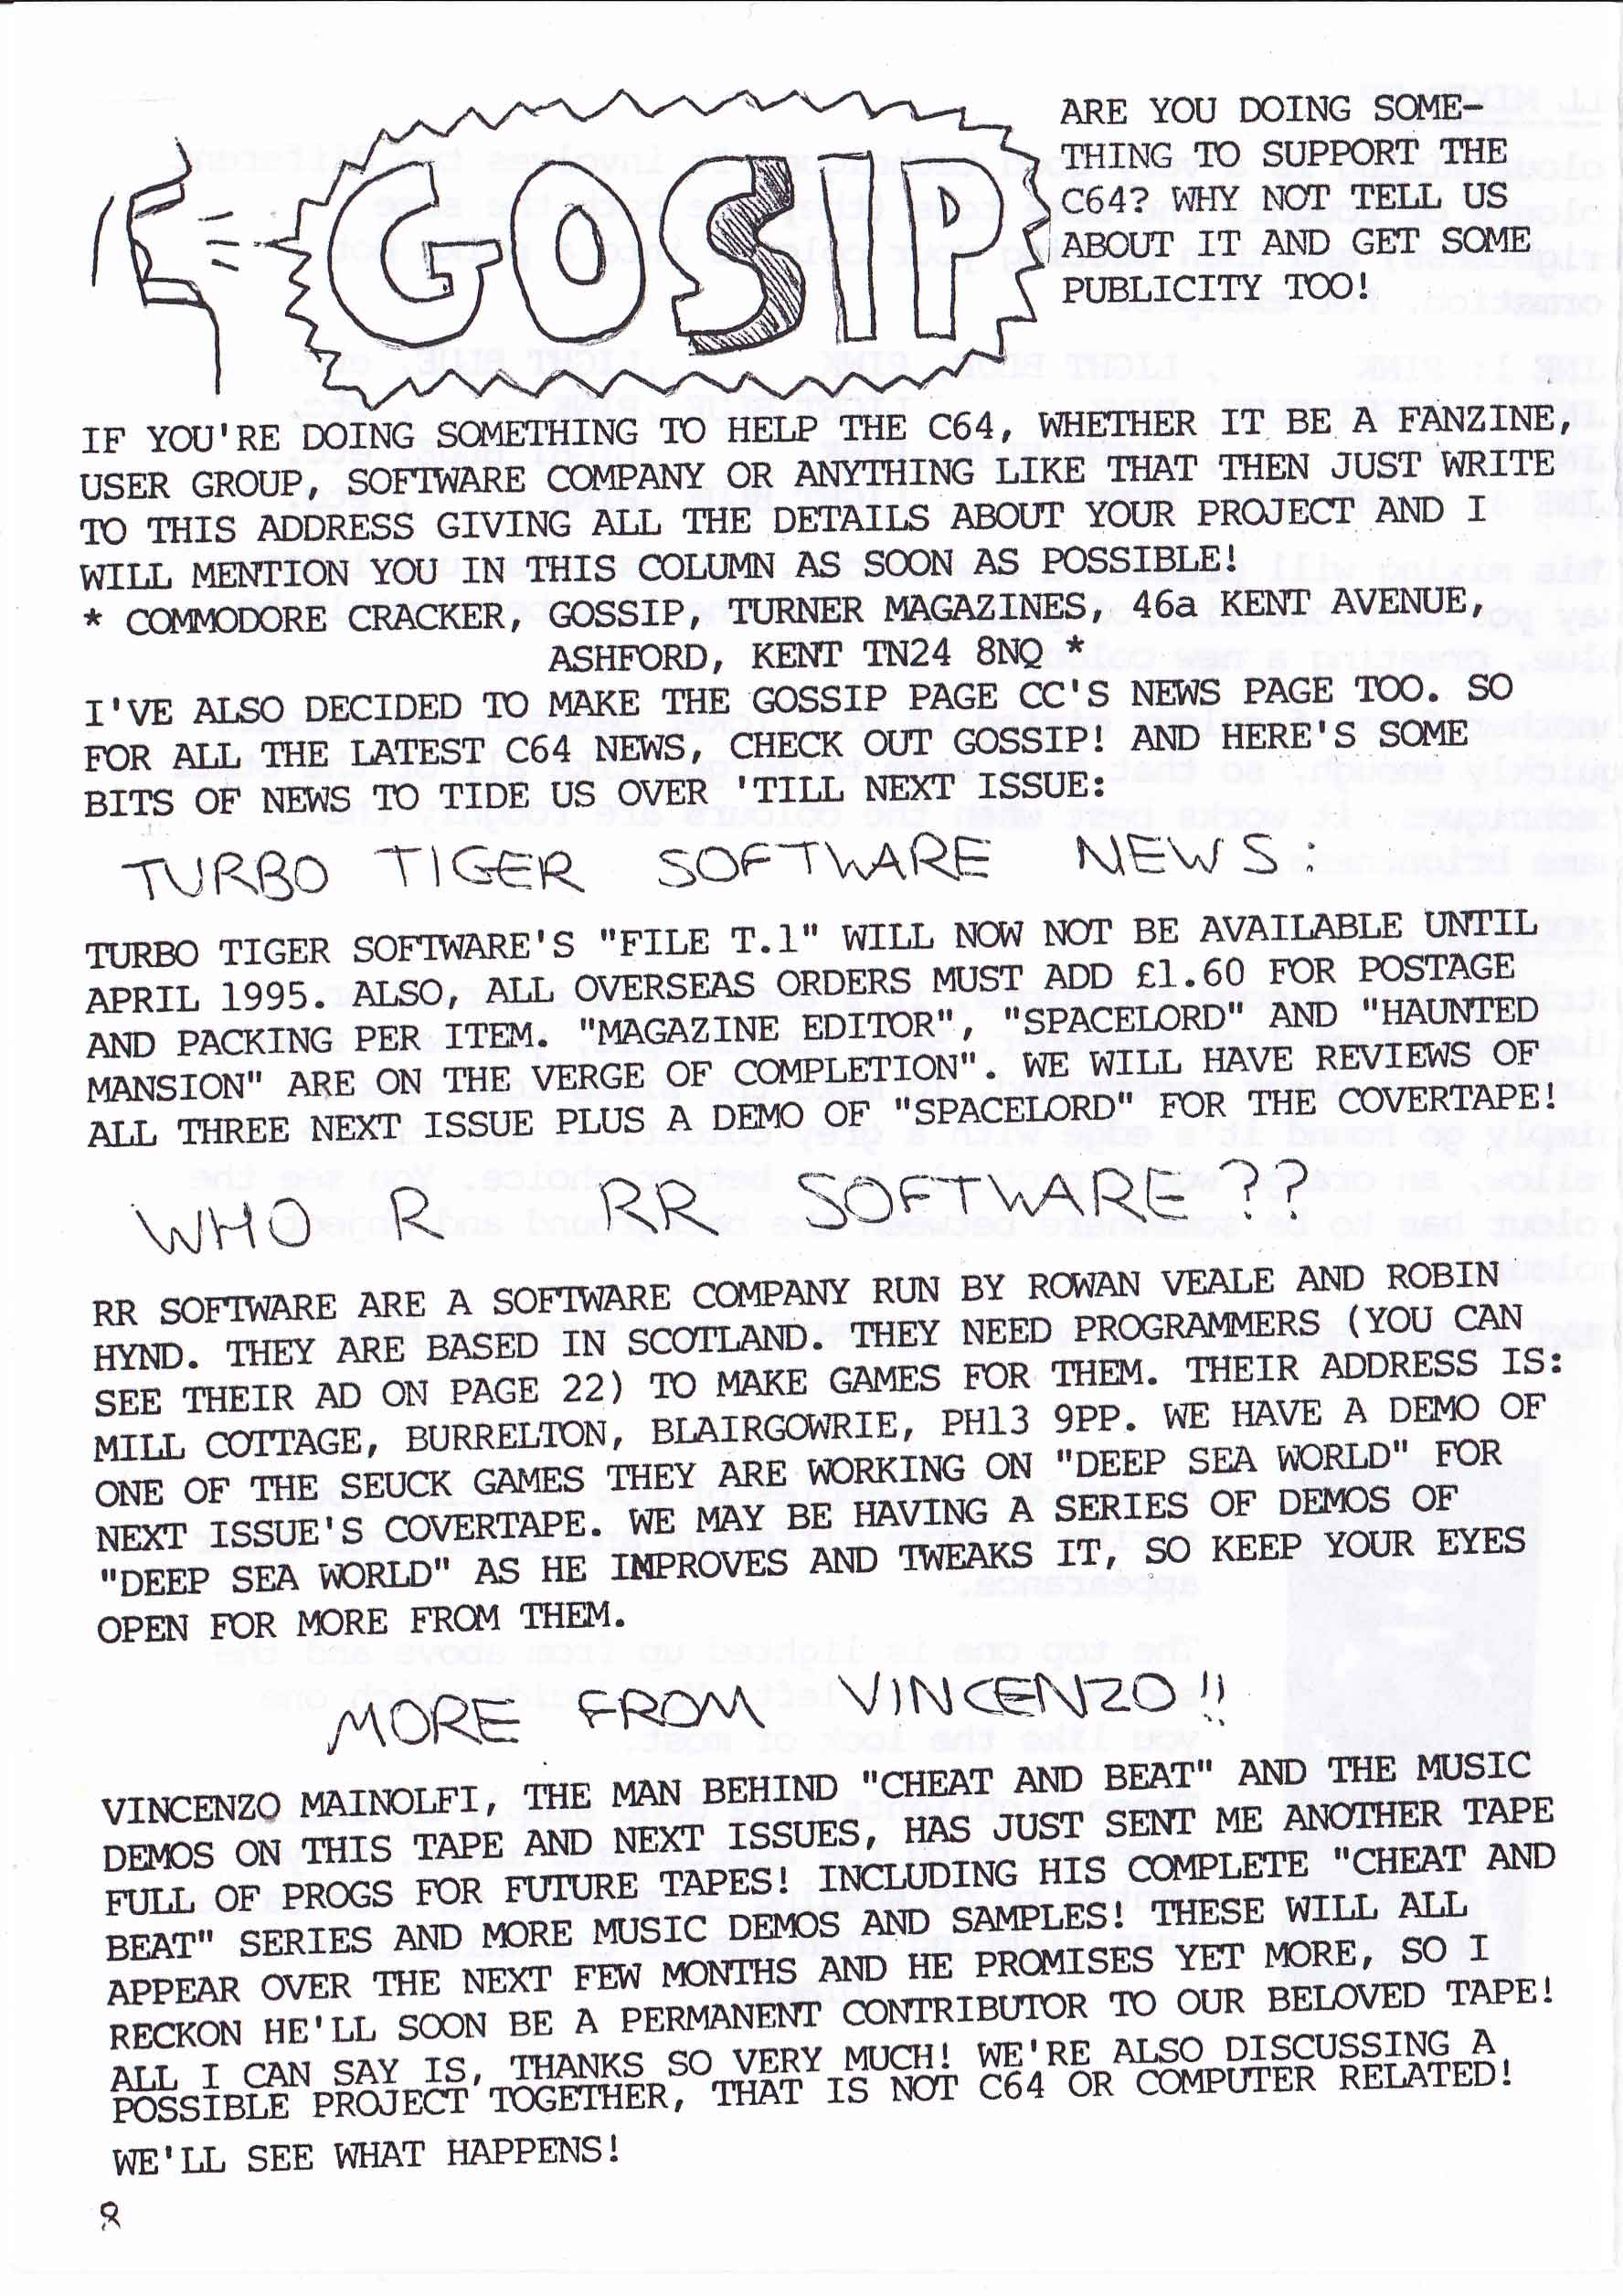 GOSIP
ARE YOU DOING SOME-
THING TO SUPPORT THE
C64? WHY NOT TELL US
ABOUT IT AND GET SOME
PUBLICITY TOO!
IF YOU'RE DOING SOMETHING TO HELP THE C64, WHETHER IT BE A FANZINE,
USER GROUP, SOFTWARE COMPANY OR ANYTHING LIKE THAT THEN JUST WRITE
TO THIS ADDRESS GIVING ALL THE DETAILS ABOUT YOUR PROJECT AND I
WILL MENTION YOU IN THIS COLUMN AS SOON AS POSSIBLE!
* COMMODORE CRACKER, GOSSIP, TURNER MAGAZINES, 46a KENT AVENUE,
ASHFORD, KENT TN24 8NQ *
I'VE ALSO DECIDED TO MAKE THE GOSSIP PAGE CC'S NEWS PAGE TOO. SO
FOR ALL THE LATEST C64 NEWS, CHECK OUT GOSSIP! AND HERE'S SOME
BITS OF NEWS TO TIDE US OVER 'TILL NEXT ISSUE:
TURBO TIGER SOFTWARE NEWS:
TURBO TIGER SOFTWARE'S "FILE T.1" WILL NOW NOT BE AVAILABLE UNTIL
APRIL 1995. ALSO, ALL OVERSEAS ORDERS MUST ADD £1.60 FOR POSTAGE
AND PACKING PER ITEM. "MAGAZINE EDITOR", "SPACELORD" AND "HAUNTED
MANSION" ARE ON THE VERGE OF COMPLETION". WE WILL HAVE REVIEWS OF
ALL THREE NEXT ISSUE PLUS A DEMO OF "SPACELORD" FOR THE COVERTAPE!
WHO R RR SOFTWARE??
RR SOFTWARE ARE A SOFTWARE COMPANY RUN BY ROWAN VEALE AND ROBIN
HYND. THEY ARE BASED IN SCOTLAND. THEY NEED PROGRAMMERS (YOU CAN
SEE THEIR AD ON PAGE 22) TO MAKE GAMES FOR THEM. THEIR ADDRESS IS:
MILL COTTAGE, BURRELTON, BLAIRGOWRIE, PH13 9PP. WE HAVE A DEMO OF
ONE OF THE SEUCK GAMES THEY ARE WORKING ON "DEEP SEA WORLD" FOR
NEXT ISSUE'S COVERTAPE. WE MAY BE HAVING A SERIES OF DEMOS OF
"DEEP SEA WORLD" AS HE IMPROVES AND TWEAKS IT, SO KEEP YOUR EYES
OPEN FOR MORE FROM THEM.
MORE FROM VINCENZO!!
VINCENZO MAINOLFI, THE MAN BEHIND "CHEAT AND BEAT" AND THE MUSIC
DEMOS ON THIS TAPE AND NEXT ISSUES, HAS JUST SENT ME ANOTHER TAPE
FULL OF PROGS FOR FUTURE TAPES! INCLUDING HIS COMPLETE "CHEAT AND
BEAT" SERIES AND MORE MUSIC DEMOS AND SAMPLES! THESE WILL ALL
APPEAR OVER THE NEXT FEW MONTHS AND HE PROMISES YET MORE, SO I
RECKON HE'LL SOON BE A PERMANENT CONTRIBUTOR TO OUR BELOVED TAPE!
ALL I CAN SAY IS, THANKS SO VERY MUCH! WE'RE ALSO DISCUSSING A
POSSIBLE PROJECT TOGETHER, THAT IS NOT C64 OR COMPUTER RELATED!
WE'LL SEE WHAT HAPPENS!
8